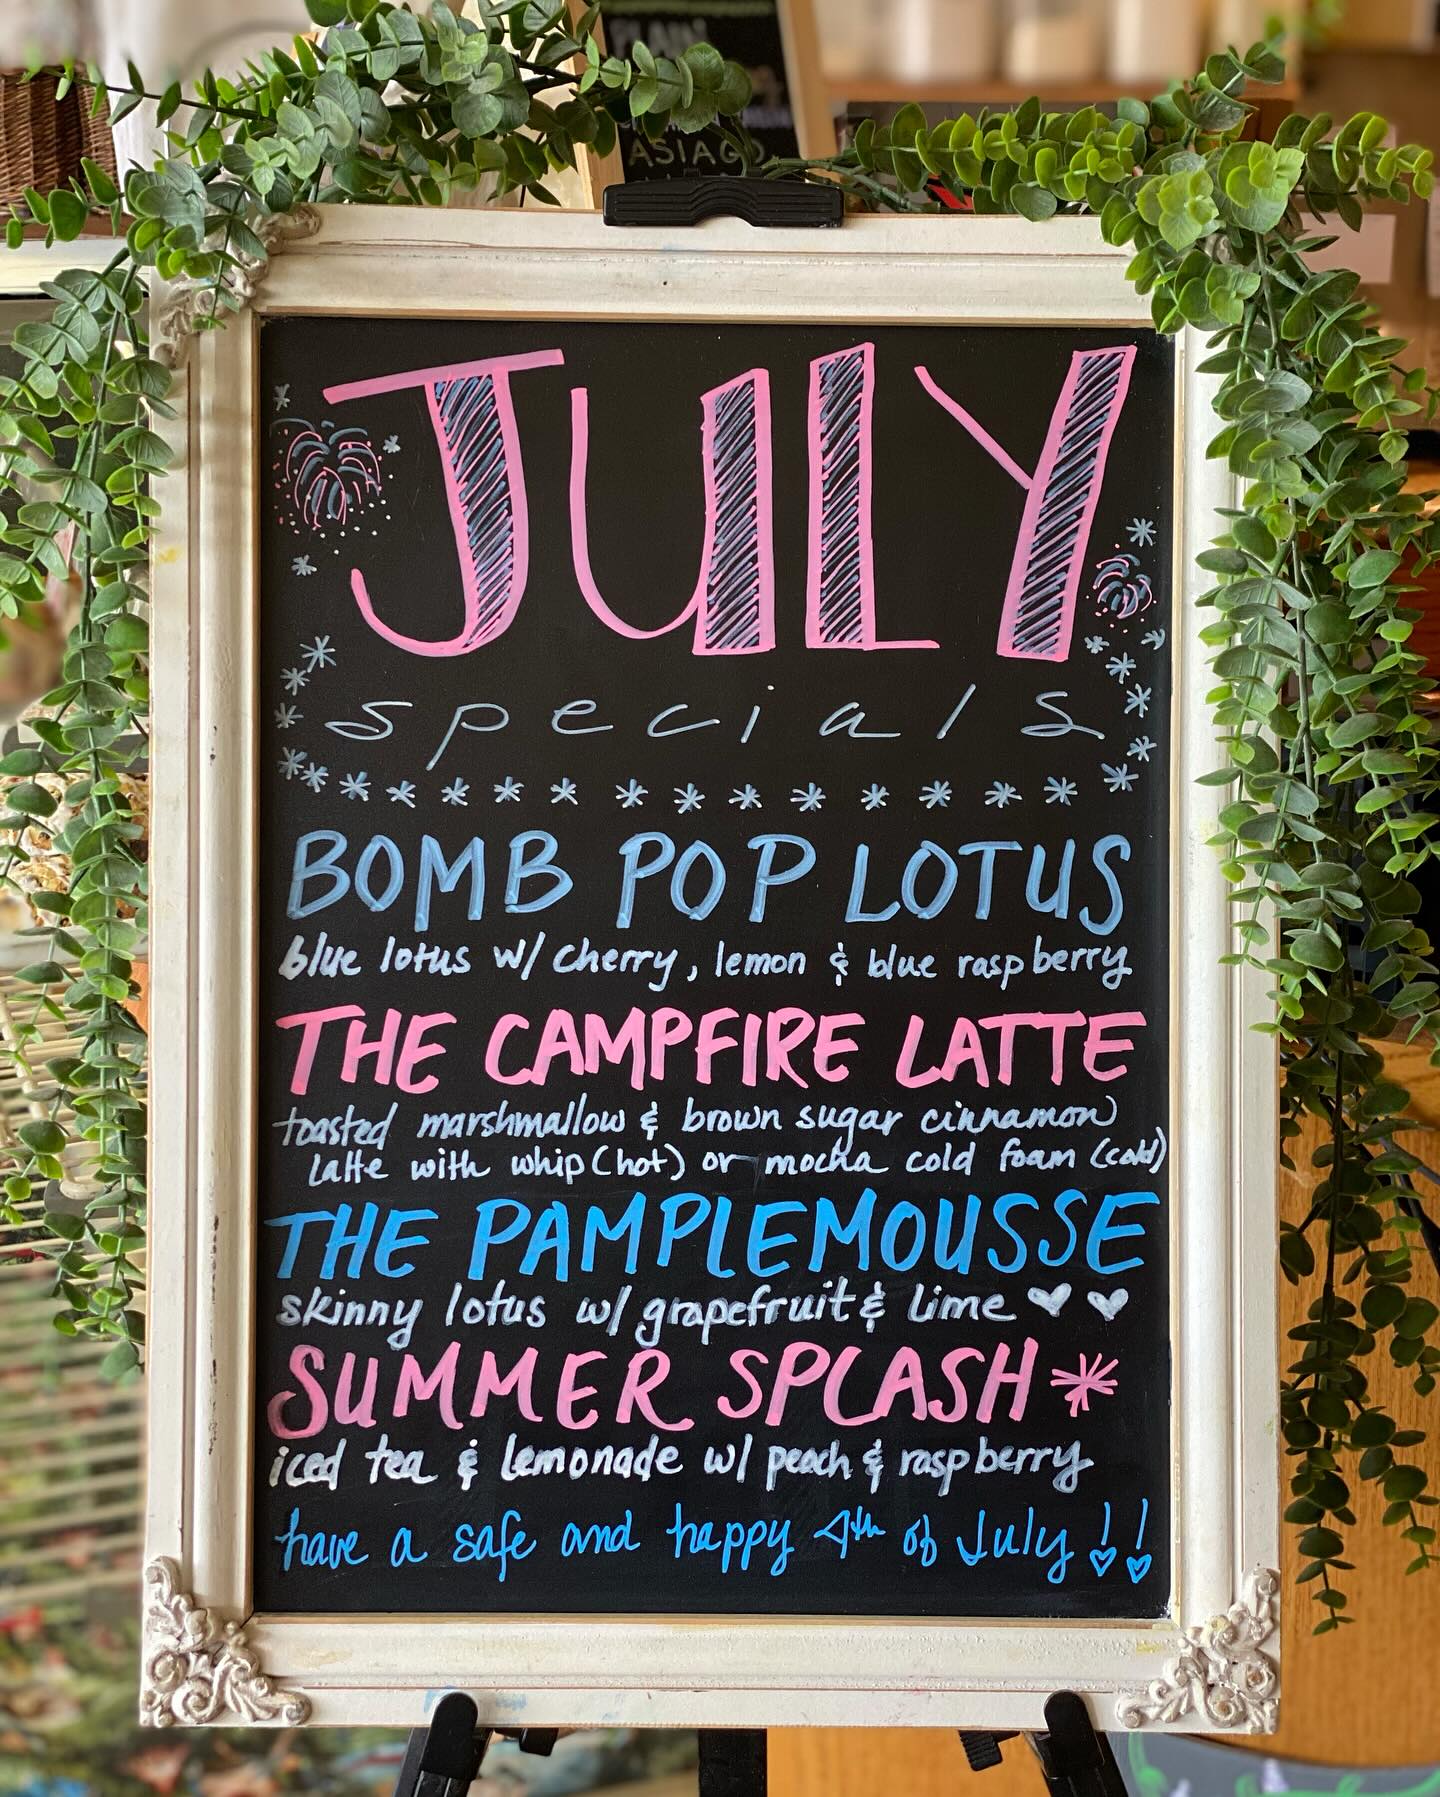 PLAIN
ASIAGO
JULY
specials
BOMB POP LOTUS
blue lotus w/ cherry, lemon & blue raspberry
THE CAMPFIRE LATTE
toasted marshmallow & brown sugar cinnamon
latte with whip (hot) or mocha cold foam (cold)
THE PAMPLEMOUSSE
skinny lotus w/ grapefruit & lime
SUMMER SPLASH
iced tea & lemonade w/ peach & raspberry
have a safe and happy 4th of July!!